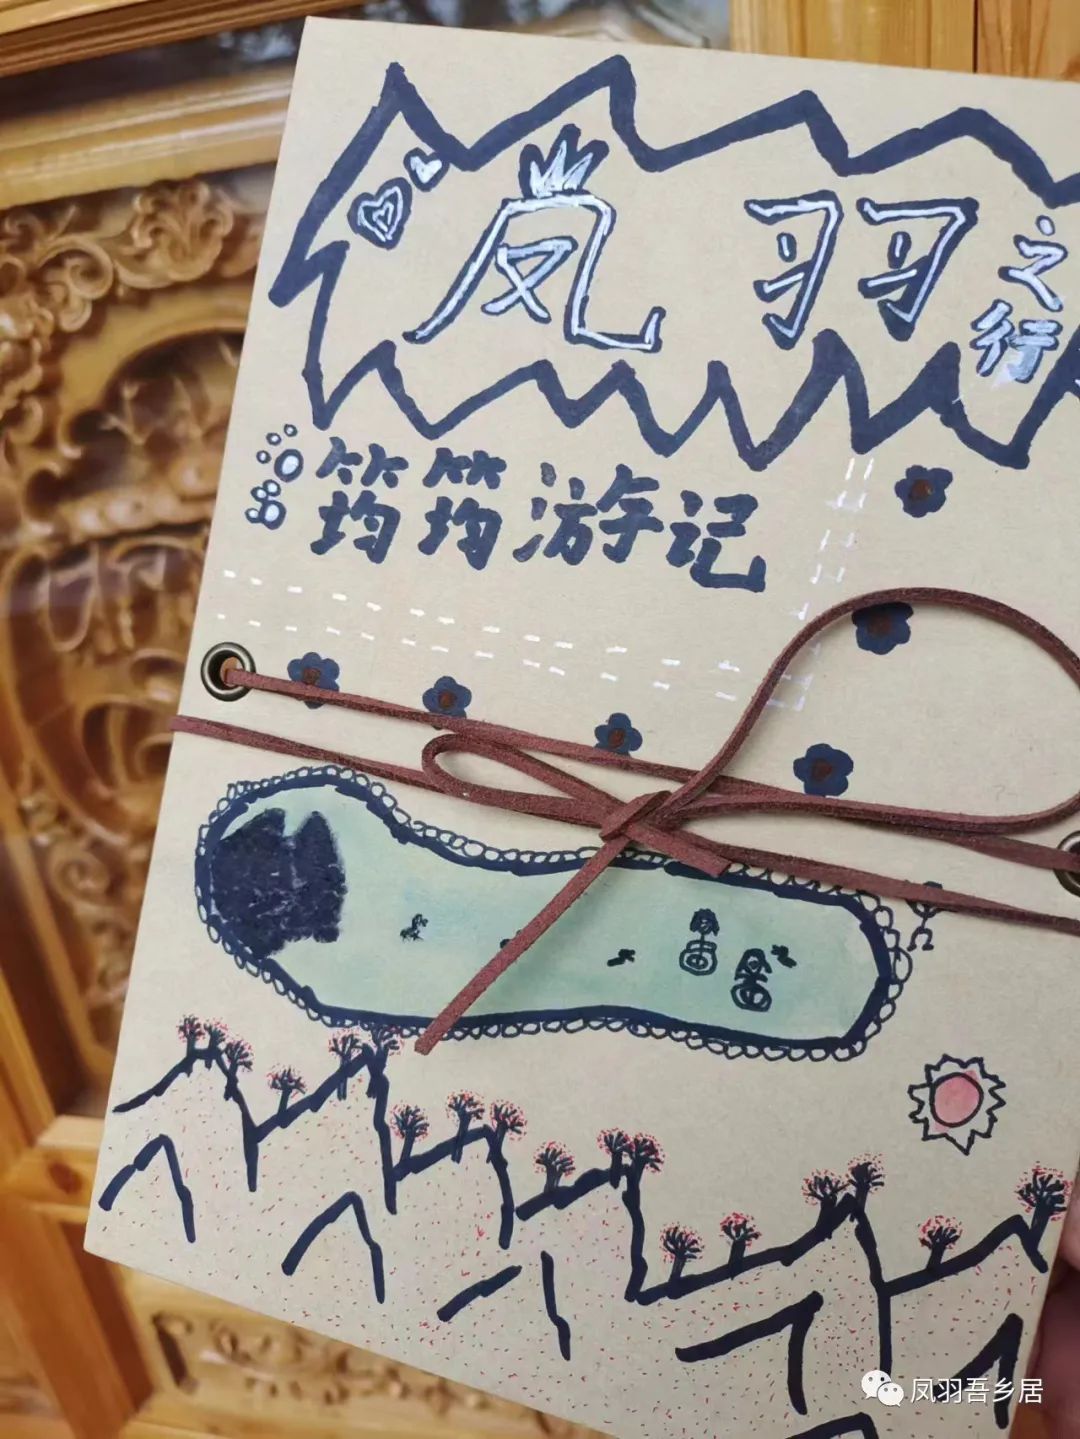 凤羽之行
筠筠游记
凤羽吾乡居